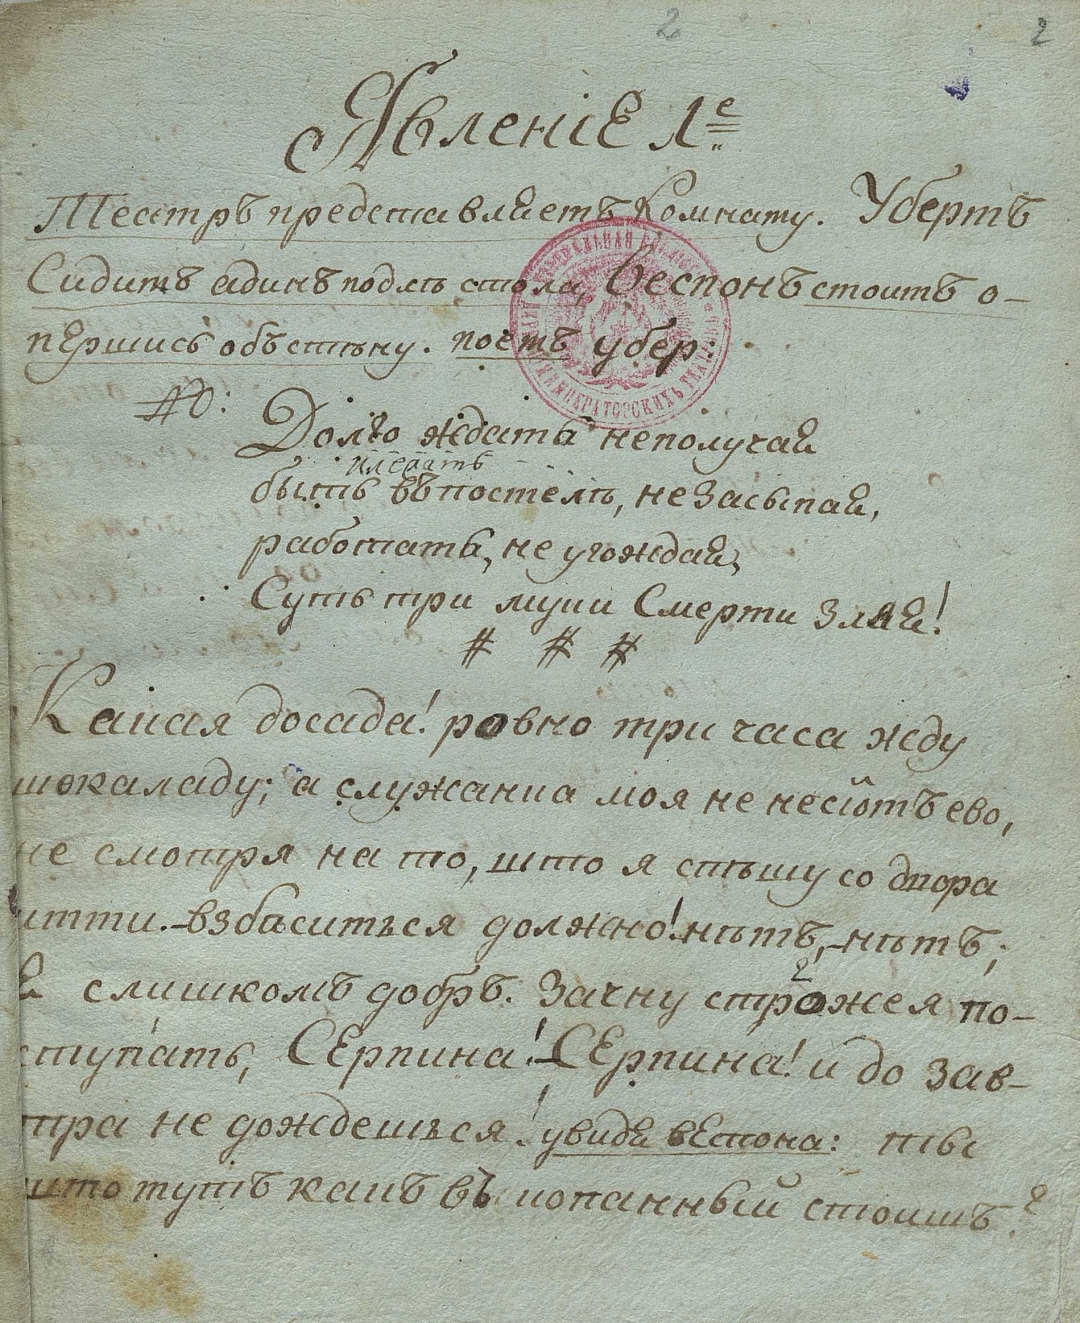 2 2
Явленіе 1е
Театръ представляетъ Комнату. Убертъ
Сидитъ адинъ подлѣ стола, Веспонъ стоитъ о-
першись объ стѣну. поетъ убер:
№:
Долго ждать не получая
плежать
быть въ постелѣ, не засыпая,
работать, не угождая,
Суть три муки Смерти Зляя!
# # #
Какая досада! ровно три часа жду
шокаладу; а служанка моя не несіотъ ево,
не смотря на то, што я спѣшу со двора
итти. - взбѣситься должно! нѣтъ, - нѣтъ;
я слишкомъ добръ. Зачну строжея по-
ступать, Серпина! - Серпина! и до зав-
тра не дождешься! увидя вестона: ты
што тутъ какъ въ копанный стоишъ?
ИМПЕРАТОРСКИХЪ ТЕАТРОВЪ